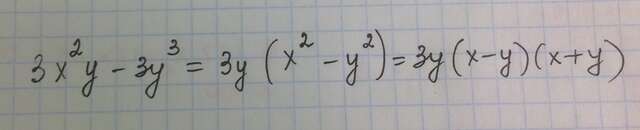 3x²y - 3y³ = 3y (x² - y²) = 3y (x-y) (x+y)